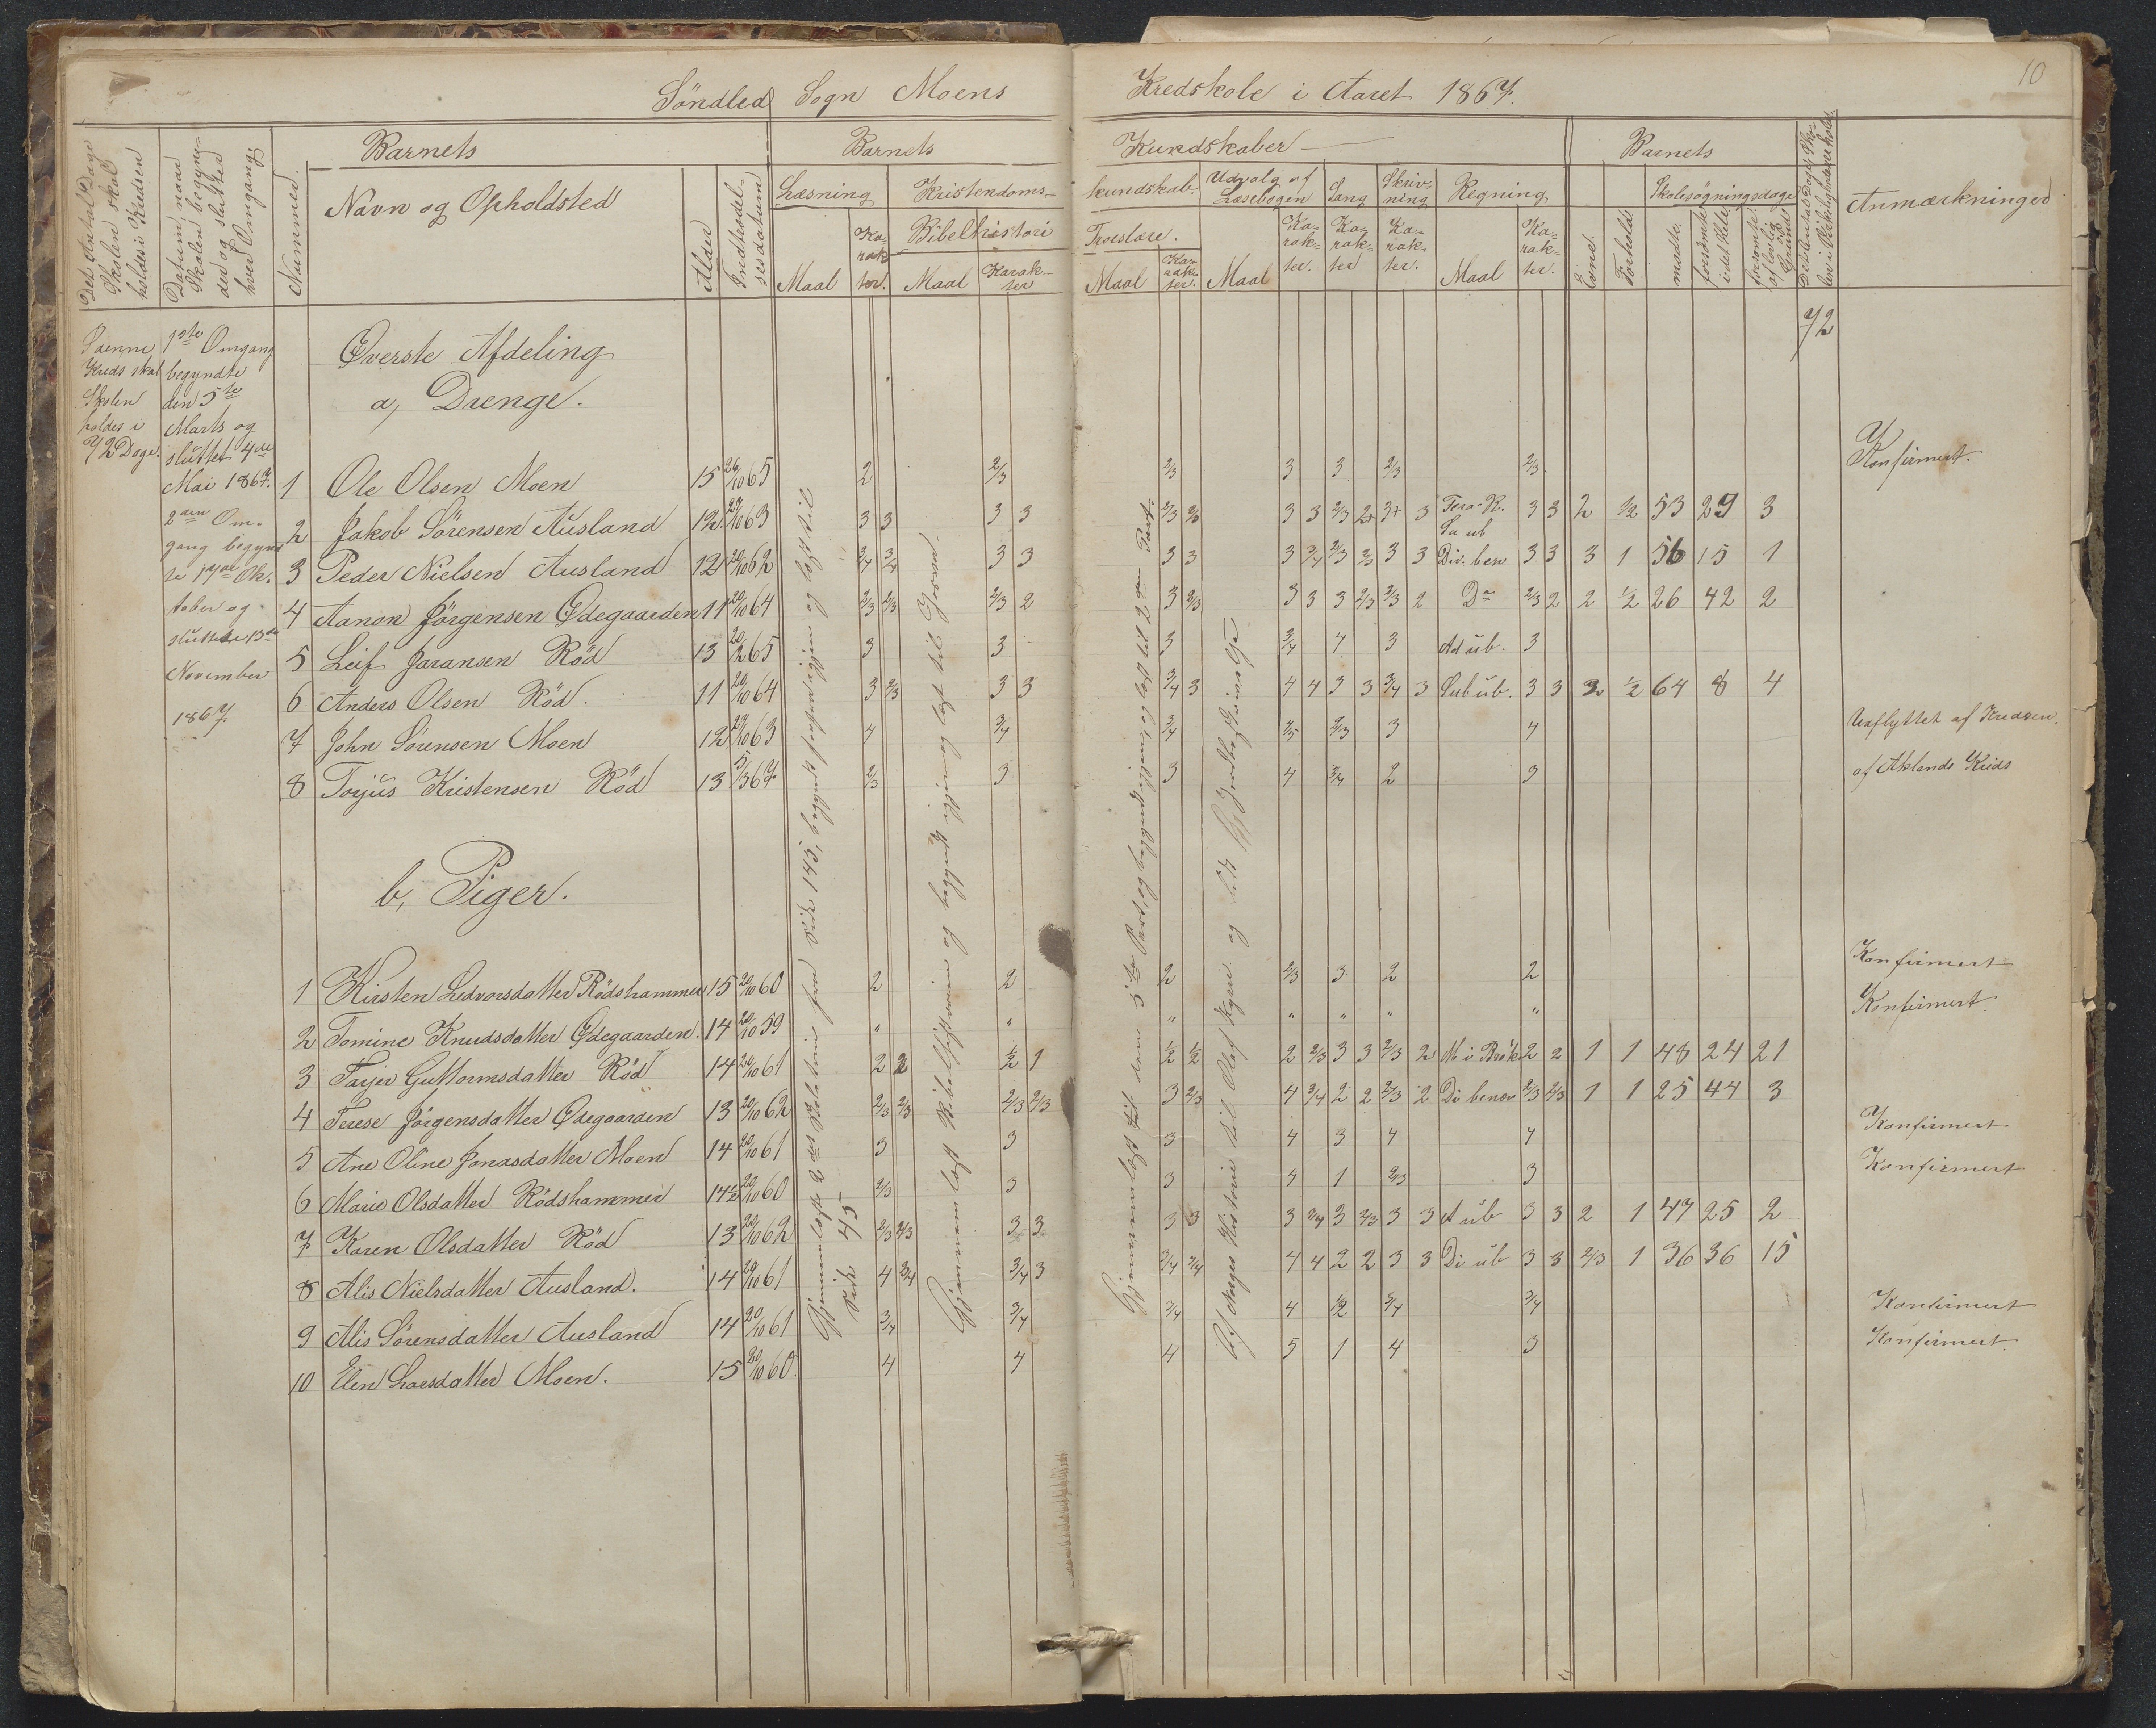 10
Søndled Sogn Moens Kredskole i Aaret 1867.
Det Antal Dage Skolen skal holdes i Kredsen
Datum, naar Skolen begynder og sluttes hver Omgang.
Nummer.
Barnets
Navn og Opholdsted
Alder
Indtrædelsesdatum
Barnets
Læsning
Maal
Karakter.
Kristendoms-
Bibelhistori
Maal
Karakter
Kundskaber
kundskab.
Troeslære.
Maal
Karakter.
Udvalg af Læsebogen
Maal
Karakter.
Sang
Karakter
Skrivning
Karakter.
Regning
Maal
Karakter.
Barnets
Evne.
Forhold.
Skolesøgningsdage
mødte.
forsømte i det Hele
forsømte af lovlig Grund
Anmærkninger
72
Denne
Kreds skal
Skolen
holdes i
72 Dage.
1ste Omgang
begyndte
den 5te
Marts og
sluttet 4de
Mai 1867.
2den Om-
gang begynd
te 17de Ok-
tober og
sluttede 13de
November
1867.
Øverste Afdeling
a, Drenge.
1 Ole Olsen Moen 15 26/10 65 2 2/3 2/3 3 3 2/3 2/3. Konfirmert.
2 Jakob Sörensen Ausland 12 20/10 63 3 3 3 3 3 3 2/3 2+ 3+ 3 3 3 2 1/2 53 29 3
3 Peder Nielsen Ausland 12 20/10 62 3/4 3/4 3 3 3 3 3 3/4 2/3 2/3 3 3 Div. ben 3 3 3 1 56 15 1
4 Aanon Jörgensen Ødegaarden 11 20/10 64 2/3 2/3 2/3 2 3 2/3 3 3 3 2/3 2/3 2 Do 2/3 2 2 1/2 26 42 2
5 Leif Jaransen Röd 13 20/2 65 3 3 3 3/4 4 3 Ad ub. 3
6 Anders Olsen Röd. 11 20/10 64 3 2/3 3 3 3/4 3 4 4 3 3 3/4 3 Sub ub. 3 3 2 1/2 64 8 4
7 John Sörensen Moen 12 20/10 63 4 3/4 3/4 3/5 2/3 3 4 Udflyttet af Kredsen.
8 Torjus Kristensen Röd 13 5/3 67 2/3 3 3 4 3/4 2 3 af Aklands Kreds
b, Piger.
1 Kirsten Ledvorsdatter Rödshammer 15 20/10 60 2 2 2 2/3 3 2 2 Konfirmert
2 Tomine Knudsdatter Ødegaarden. 14 20/10 59 " " " " " " " Konfirmert.
3 Tarjer Guttormsdatter Röd 14 20/10 61 2 2 1/2 1 1/2 1/2 2 2/3 3 3 2/3 2 M i Brök 2 2 1 1 48 24 21
4 Terese Jörgensdatter Ødegaarden 13 20/10 62 2/3 2/3 2/3 2/3 3 2/3 4 3/4 2 2 2/3 2 Di benev 2/3 2/3 1 1 25 44 3
5 Ane Oline Jonasdatter Moen 14 20/10 61 3 3 3 4 3 4 4 Konfirmert
6 Marie Olsdatter Rödshammer 14 1/2 20/10 60 2/3 3 3 4 1 2/3 3 Konfirmert
7 Karen Olsdatter Röd 13 20/10 62 2/3 2/3 3 3 3 3 3 3/4 3 2/3 3 3 A ub 3 3 2 1 47 25 2
8 Alis Nielsdatter Ausland. 14 20/10 61 4 3/4 3/4 3 3/4 3/4 4 4 2 2 3 3 Di ub 3 3 2/3 1 36 36 15
9 Alis Sörensdatter Ausland 14 20/10 61 3/4 3/4 3/4 4 1/2 3/4 3/4 Konfirmert
10 Elen Larsdatter Moen. 15 20/10 60. 4 4 4 5 1 4 3 Konfirmert.
Gjennemlæst 2den fra Side 143, begyndt igjen og læst til Side 45
Gjennemlæst Bibelhistorien og begyndt igjen og læst til
Gjennemlæst til den 5te Part, og begyndt igjen, og læst til 2den Part.
Af Norges Historie til Olaf Kyrre. og lidt